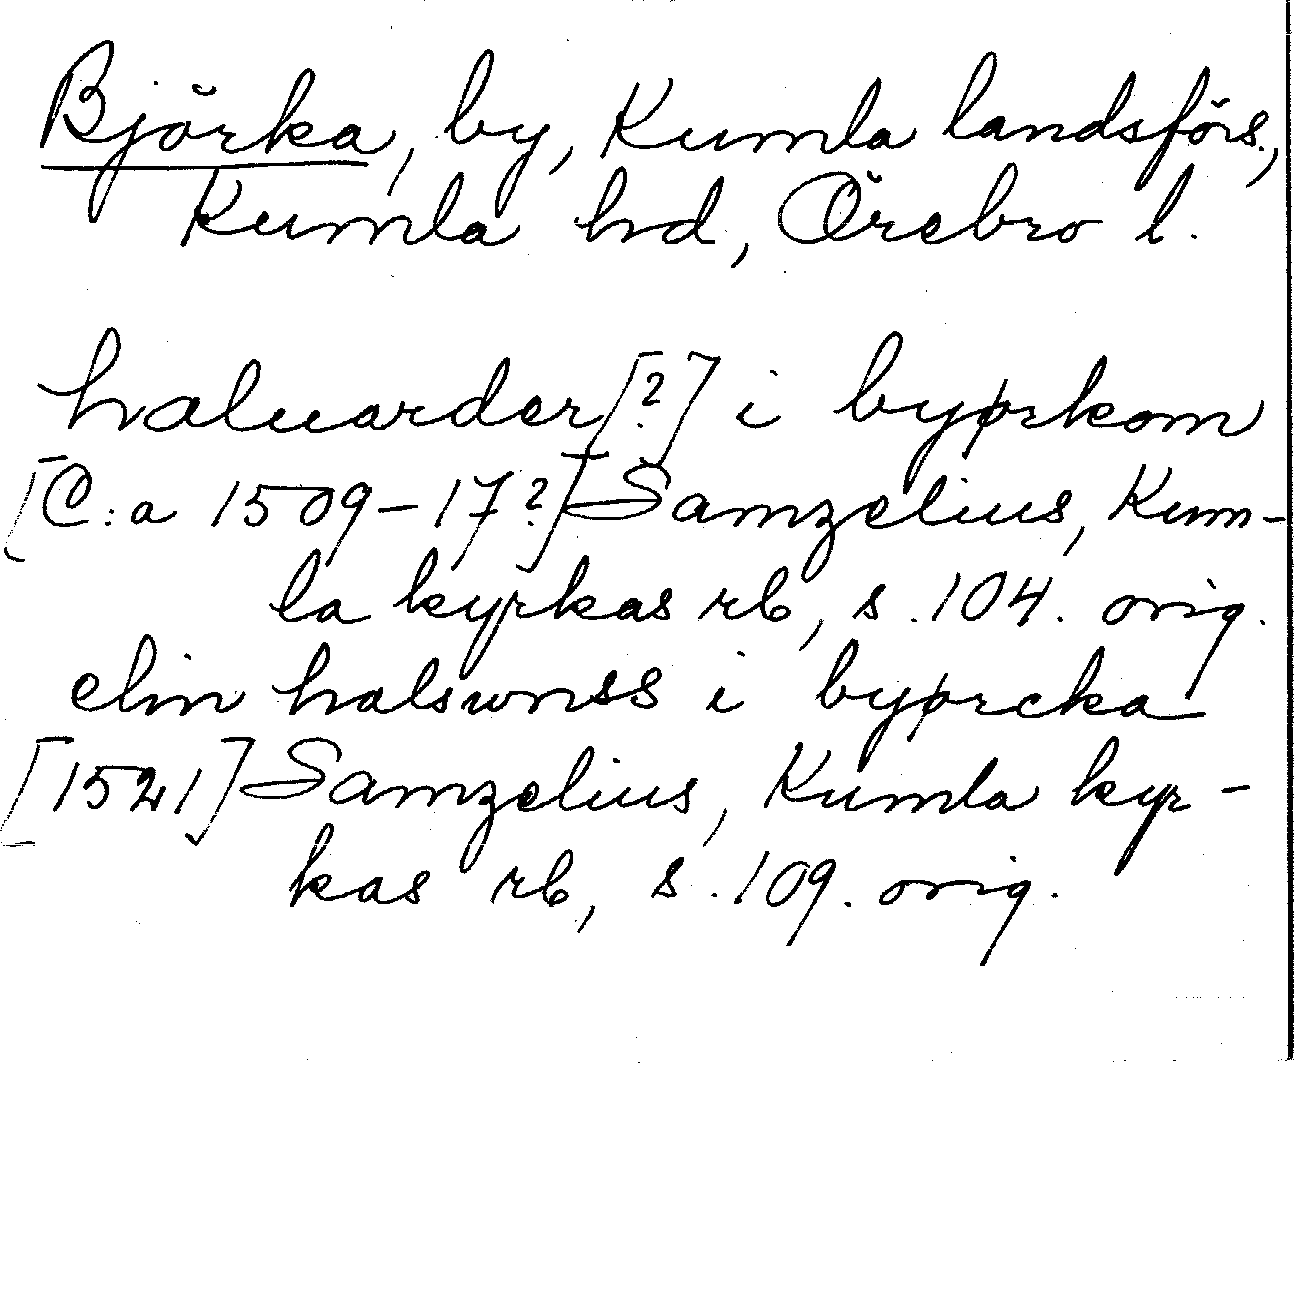 Björka, by, Kumla landsförs.,
Kumla hd, Örebro l.
haluarder [?] i byørkom
[C:a 1509-17?] Samzelius, Kum-
la kyrkas rb, s. 104. orig.
elin halswnss i byørcka
[1521] Samzelius, Kumla kyr-
kas rb, s. 109. orig.